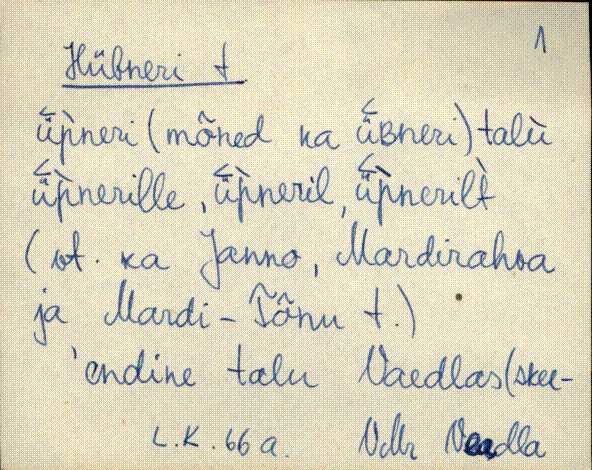 1
Hübneri t
ü̆p̀neri (mõned ka ü̆ʙneri) talù
ü̆p̀nerille, ü̆p̀neril, ü̆p̀nerilt̀
(vt. ka Janno, Mardirahva
ja Mardi-Tõnu t.)
'endine talu Vaedlas (skee-
L.K. 66 a. VMr Vaedla